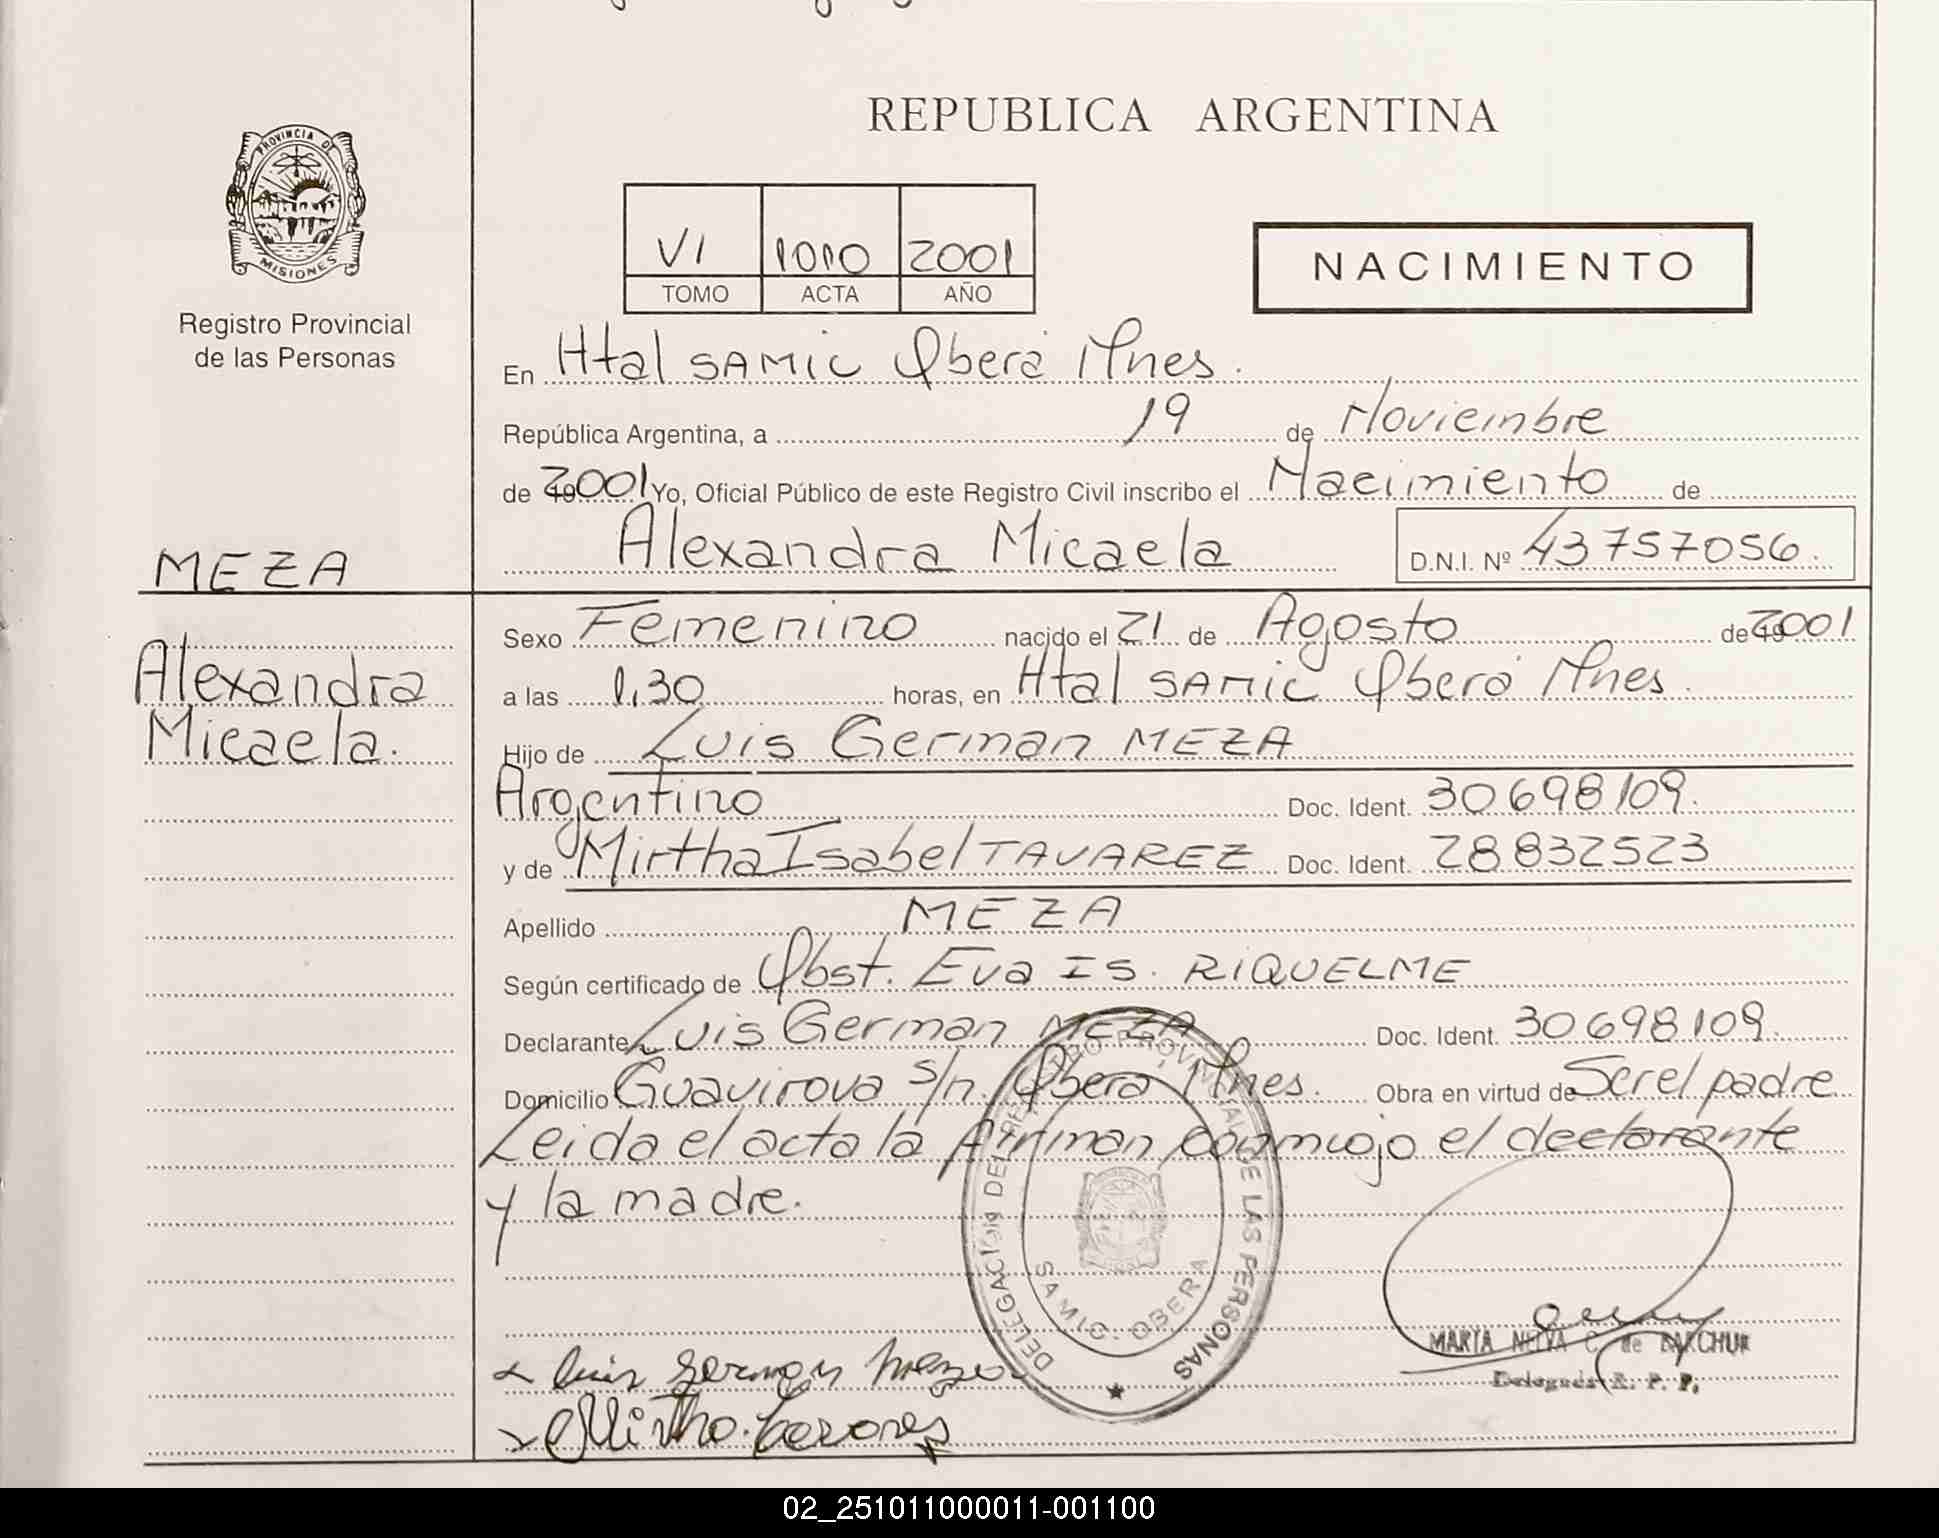 REPUBLICA ARGENTINA
PROVINCIA DE
MISIONES
Registro Provincial
de las Personas
VI 1010 2001
TOMO ACTA AÑO
NACIMIENTO
En Htal SAMIC Oberá Mnes.
República Argentina, a 19 de Noviembre
de 2001 Yo, Oficial Público de este Registro Civil inscribo el Nacimiento de
Alexandra Micaela D.N.I. Nº 43757056.
MEZA
Alexandra
Micaela.
Sexo Femenino nacido el 21 de Agosto de 2001
a las 1,30 horas, en Htal SAMIC Oberá Mnes.
Hijo de Luis German MEZA
Argentino Doc. Ident. 30698109.
y de Mirtha Isabel TAVAREZ Doc. Ident. 28832523
Apellido MEZA
Según certificado de Obst. Eva IS. RIQUELME
Declarante Luis German MEZA Doc. Ident. 30698109.
Domicilio Guavirova s/n. Oberá, Mnes. Obra en virtud de Ser el padre
Leida el acta la firman conmigo el declarante
y la madre.
DELEGACION DEL REGISTRO PROVINCIAL DE LAS PERSONAS
SAMIC. OBERA
luis german meza
MARIA NELVA C. de BARCHUK
Delegada R. P. P.
Mirtha
02_251011000011-001100